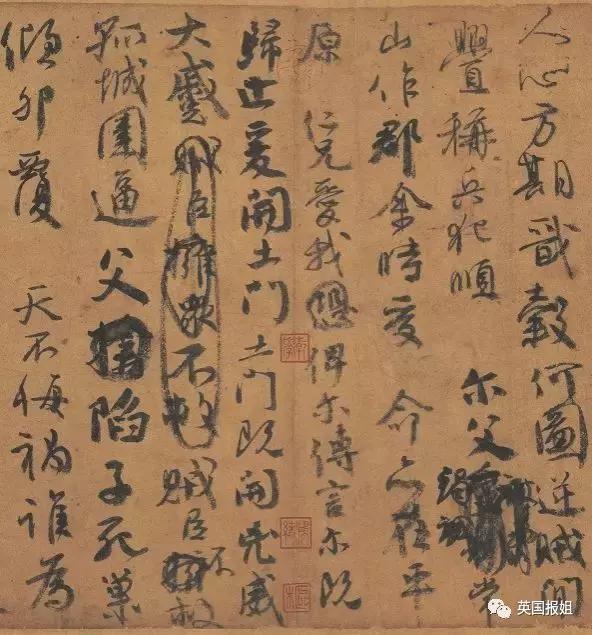 人心方期戩穀何圖逆賊間
釁稱兵犯順 尔父竭誠常
山作郡余時受 命亦在平
原 仁兄愛我恐俾尔傳言尔既
歸止爰開土門土門既開兇威
大蹙賊臣擁眾不救賊臣不救
孤城圍逼父陷子死巢
傾卵覆 天不悔禍誰為
英国报姐